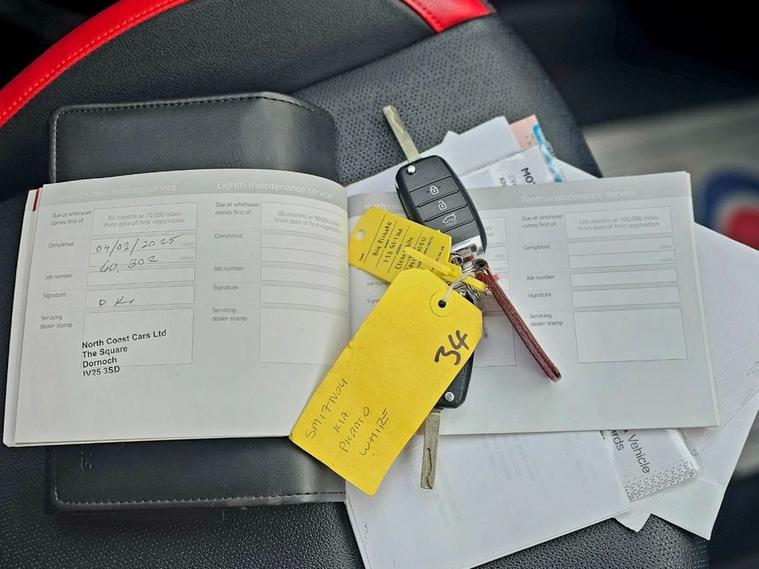 Seventh maintenance service
Due at whichever
comes first of
84 months or 70,000 miles
from date of first registration
Completed
04/02/2025
date
60,302
miles
Job number
Signature
Servicing
dealer stamp
North Coast Cars Ltd
The Square
Dornoch
IV25 3SD
Eighth maintenance service
Due at whichever
comes first of
96 months or 80,000 miles
from date of first registration
Completed
Job number
Signature
Servicing
dealer stamp
Tenth maintenance service
Due at whichever
comes first of
120 months or 100,000 miles
from date of first registration
Completed
Job number
Signature
Servicing
dealer stamp
Kia Picanto
34
SM17NOU
KIA
PICANTO
WHITE
MOT
Vehicle